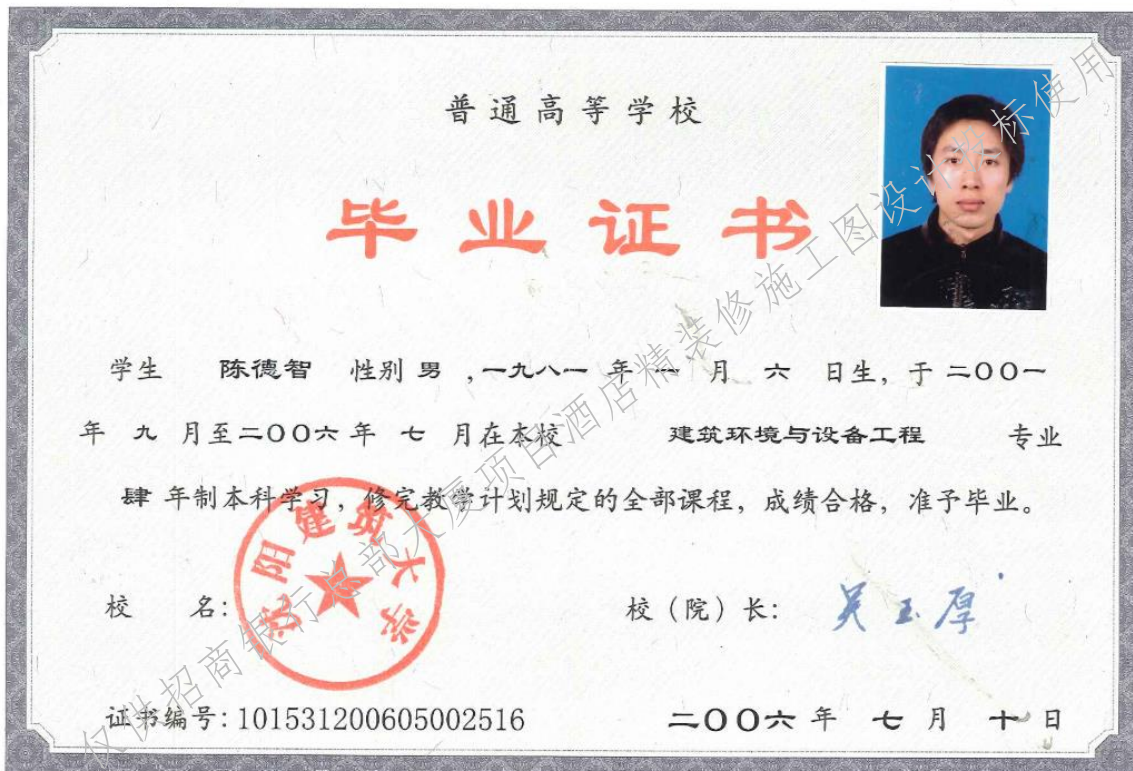 普通高等学校
毕业证书
学生 陈德智 性别 男 ,一九八一 年 一 月 六 日生, 于 二〇〇一
年 九 月至二〇〇六 年 七 月在本校 建筑环境与设备工程 专业
肆 年制本科学习, 修完教学计划规定的全部课程, 成绩合格, 准予毕业。
校 名: 沈阳建筑大学
校（院）长: 吴玉厚
证书编号: 101531200605002516 二〇〇六 年 七 月 十 日
仅供招商银行总部大厦项目酒店精装修施工图设计投标使用